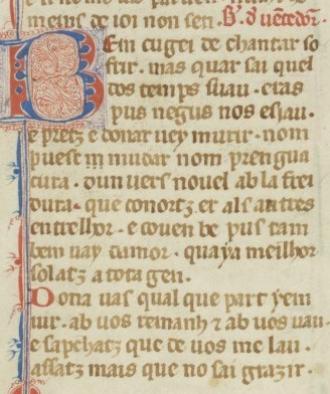 meins de ioi non sen. B. d uẽtedor.
Bein cugei de chantar so
frir. mas quar sai quel
dos temps suau. etas
pus negus nos esiau.
e pretz e donar uey murir. nom
puesc mudar nom prengua
cura. dun uers nouel ab la frei
dura. que conortz er als autres
entrelhor. e couen be pus tam
bem uay damor. quaya meilhor
solatz a tota gen.
Dona uas qual que part yem
iur. ab uos remanh ⁊ ab uos uau.
e sapchatz que de uos me lau.
assatz mais que no sai grazir.